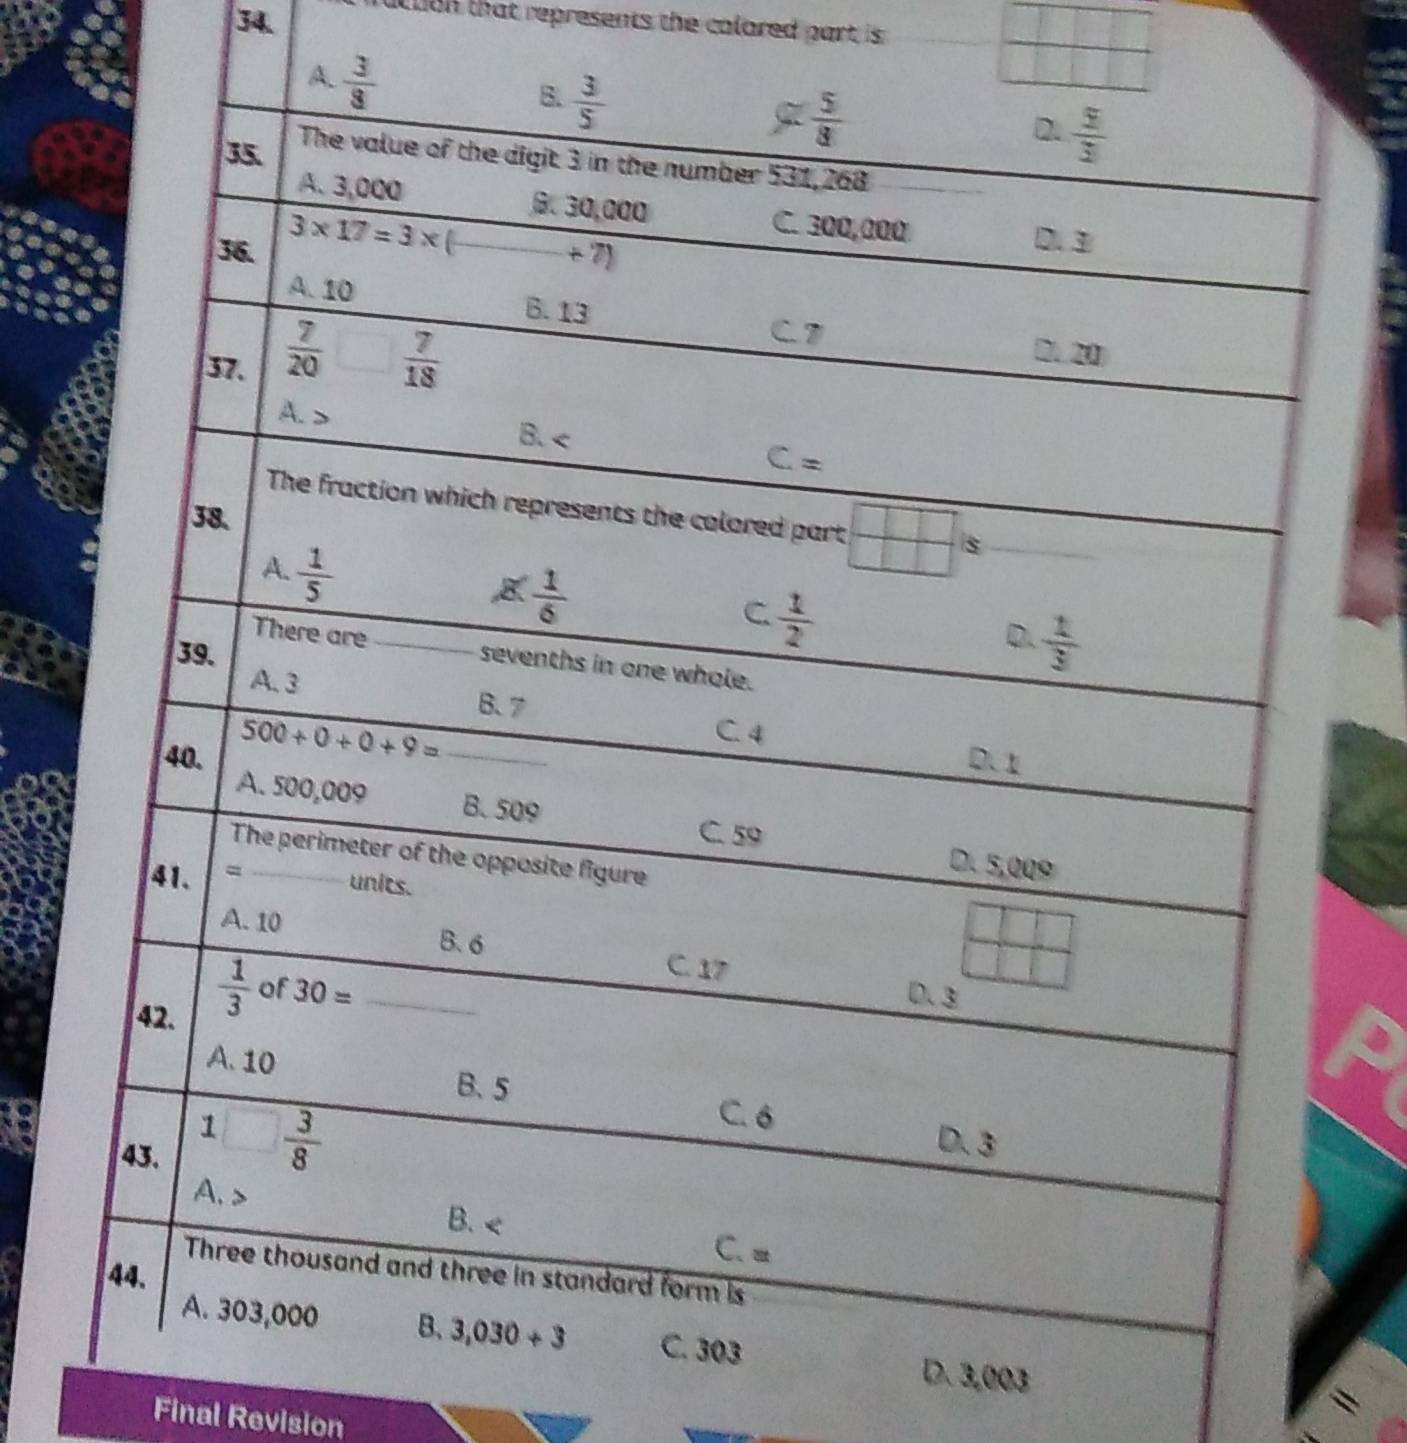 34. that represents the colored part is
A. 3/8 B. 3/5 C. 5/8 D.
35. The value of the digit 3 in the number 531,268
A. 3,000 B. 30,000 C. 300,000 D. 3
36. 3 × 17 = 3 × (________ + 7)
A. 10 B. 13 C. 7 D. 20
37. 7/20 □ 7/18
A. > B. < C. =
38. The fraction which represents the colored part is ________
A. 1/5 B. 1/6 C. 1/2 D. 1/3
39. There are ________ sevenths in one whole.
A. 3 B. 7 C. 4 D. 1
40. 500 + 0 + 0 + 9 = ________
A. 500,009 B. 509 C. 59 D. 5,009
The perimeter of the opposite figure
41. = ________ units.
A. 10 B. 6 C. 17 D. 3
42. 1/3 of 30 = ________
A. 10 B. 5 C. 6 D. 3
43. 1 □ 3/8
A. > B. < C. =
44. Three thousand and three in standard form is
A. 303,000 B. 3,030 + 3 C. 303 D. 3,003
Final Revision